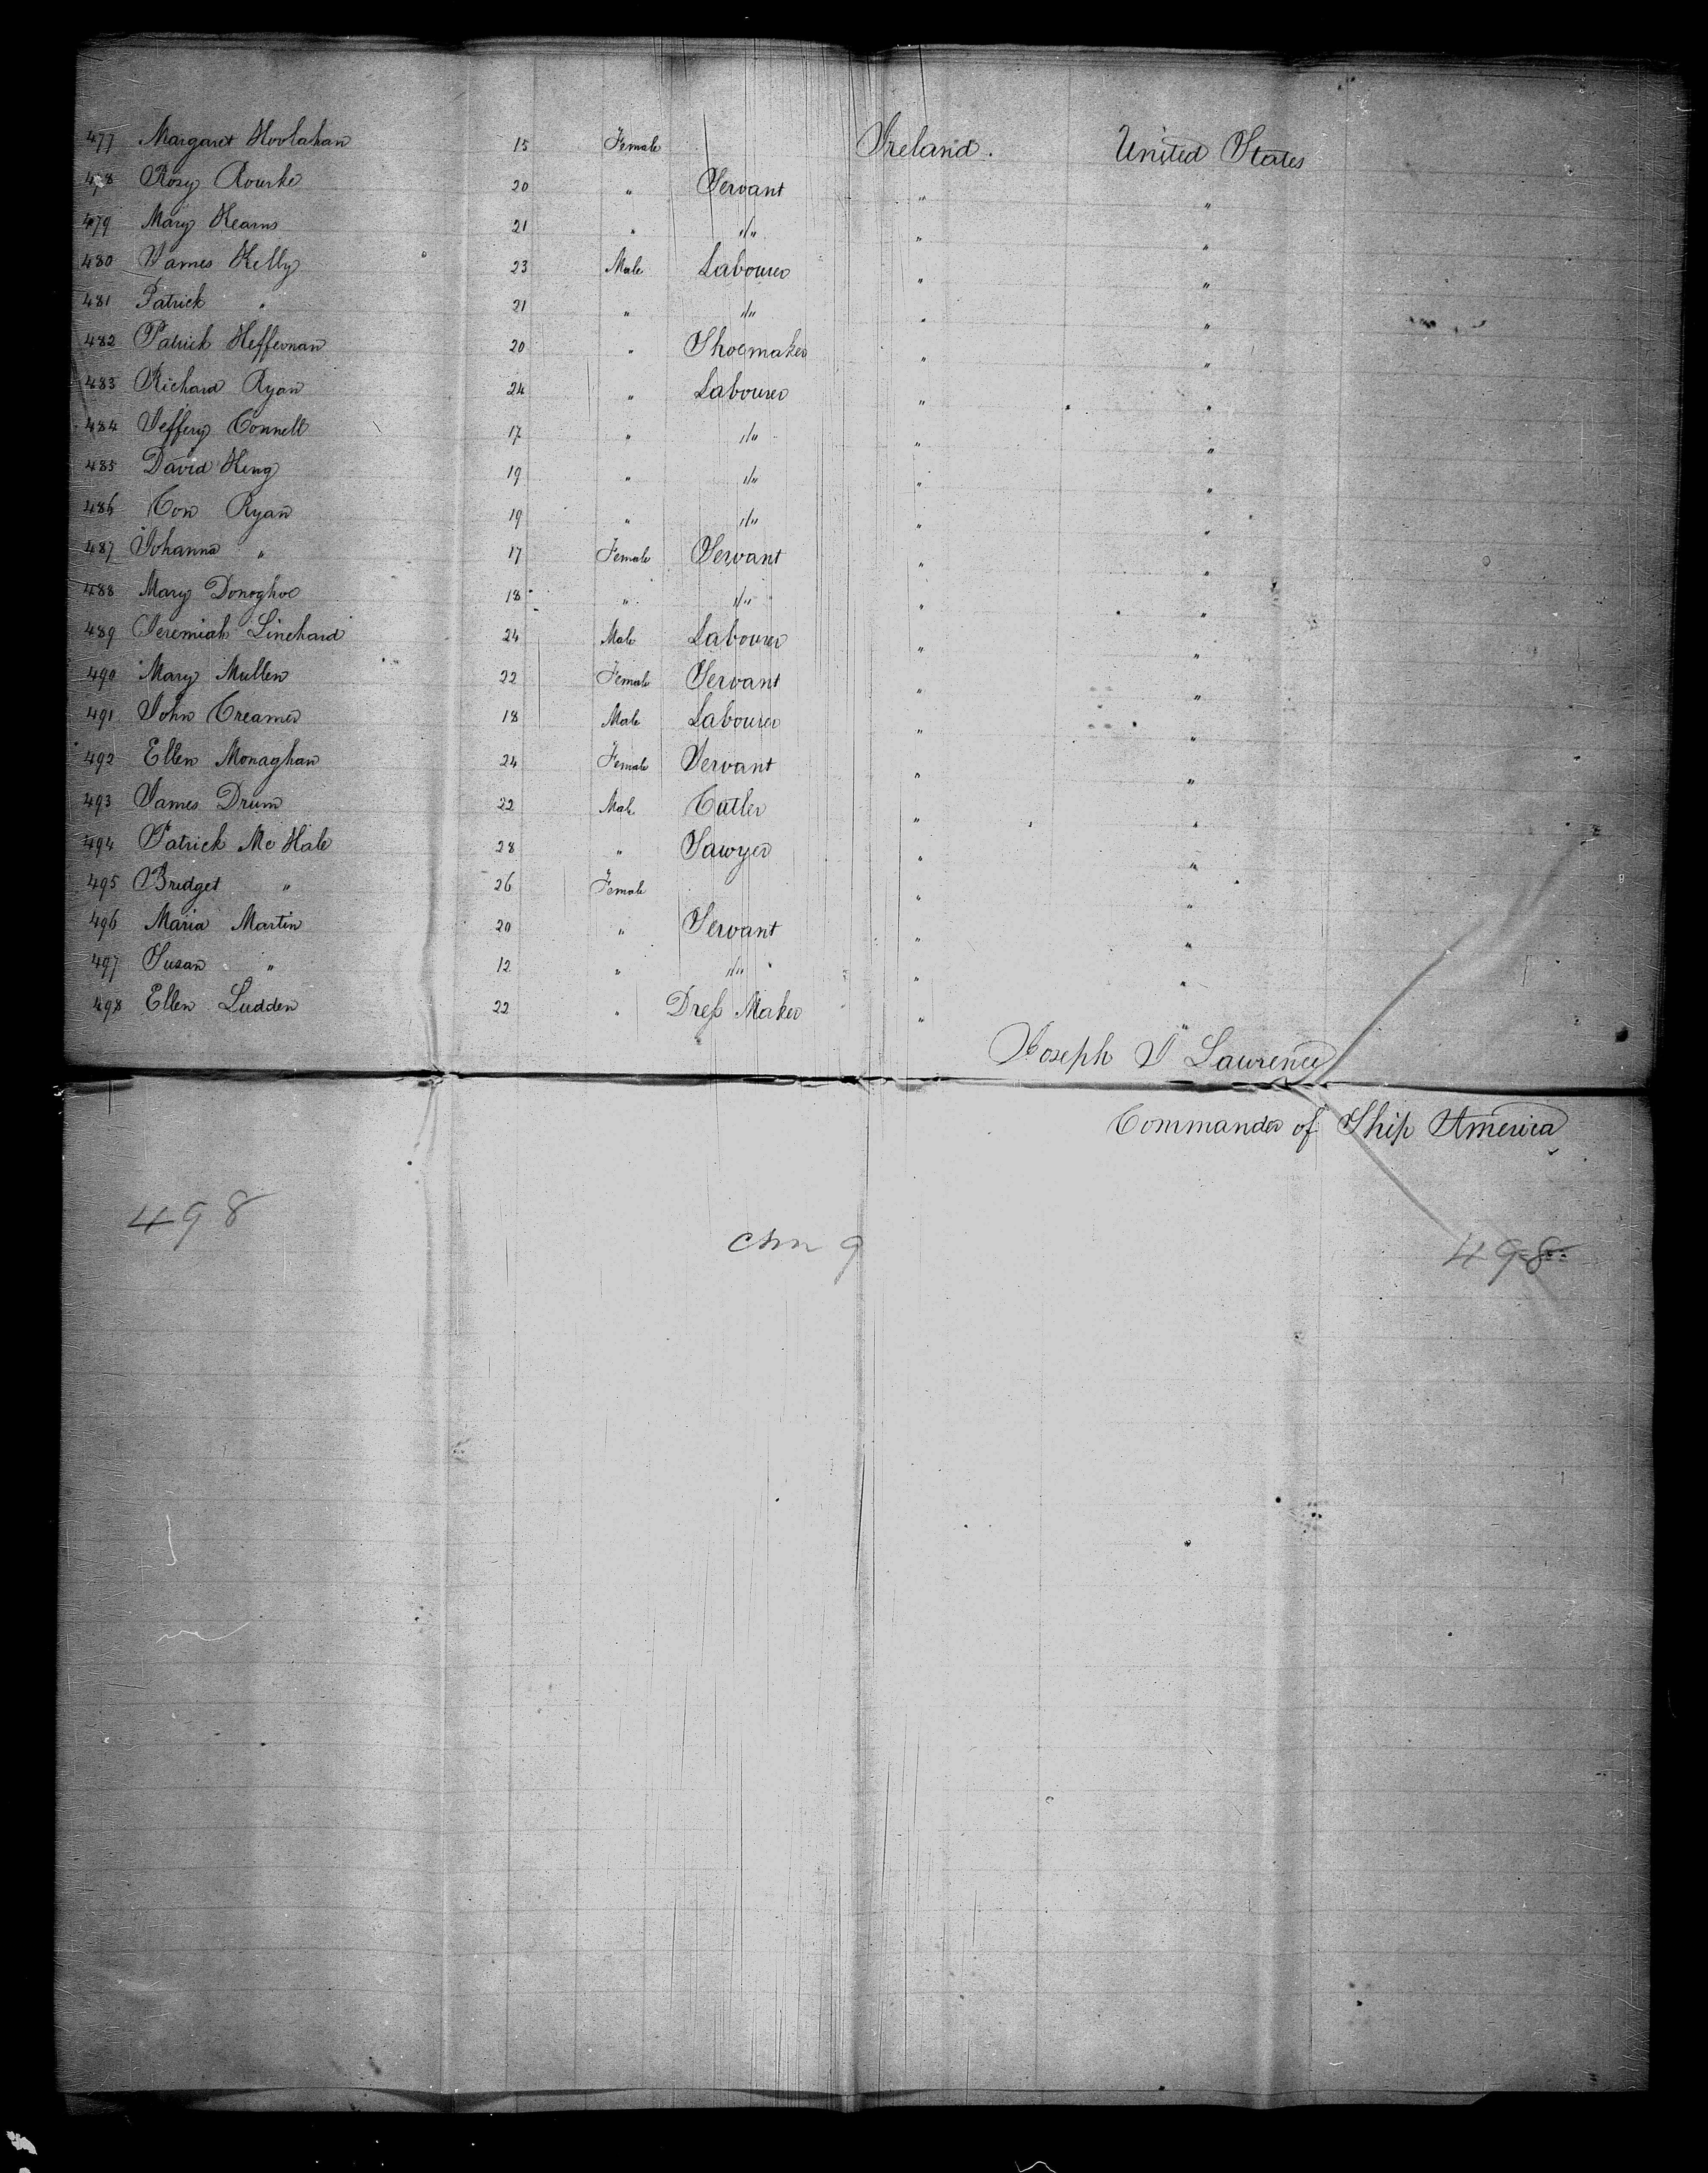 477 Margaret Hoolahan 15 Female Ireland. United States
478 Rosy Rourke 20 " Servant " "
479 Mary Kearns 21 " "/" " "
480 James Kelly 23 Male Labourer " "
481 Patrick " 21 " "/" " "
482 Patrick Heffernan 20 " Shoemaker " "
483 Richard Ryan 24 " Labourer " "
484 Jeffery Connell 17 " "/" " "
485 David King 19 " "/" " "
486 Con Ryan 19 " "/" " "
487 Johanna " 17 Female Servant " "
488 Mary Donoghoe 18 " "/" " "
489 Jeremiah Linehard 24 Male Labourer " "
490 Mary Mullen 22 Female Servant " "
491 John Creamer 18 Male Labourer " "
492 Ellen Monaghan 24 Female Servant " "
493 James Drum 22 Male Cutler " "
494 Patrick Mc Hale 28 " Sawyer " "
495 Bridget " 26 Female " "
496 Maria Martin 20 " Servant " "
497 Susan " 12 " "/" " "
498 Ellen Ludden 22 " Dress Maker " "
Joseph J Lawrence
Commander of Ship America
498
498